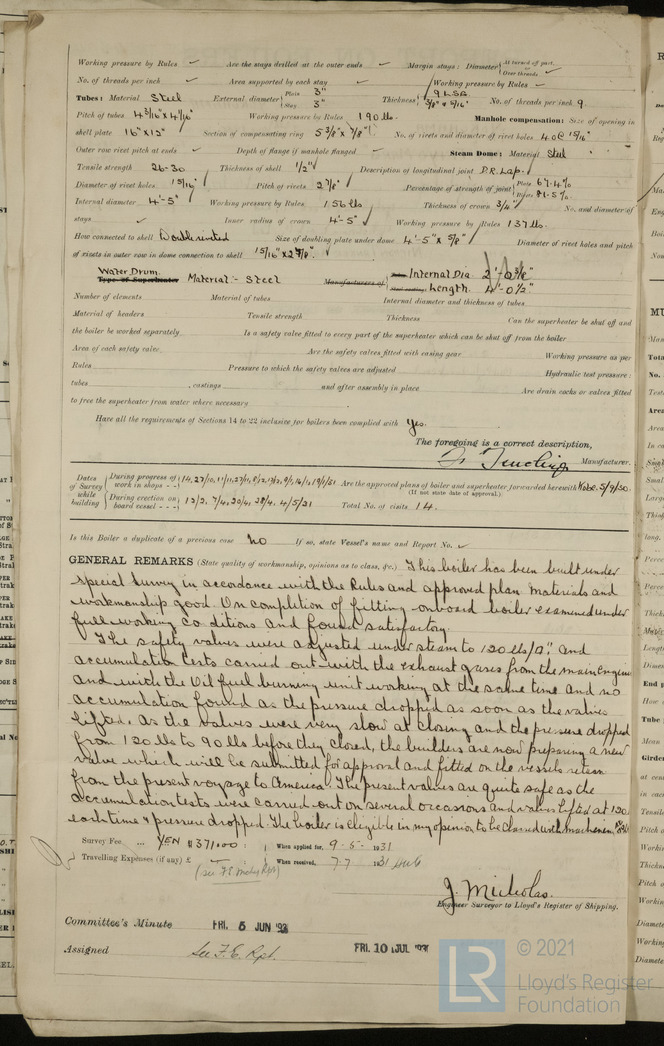 Working pressure by Rules ✓ Are the stays drilled at the outer ends ✓ Margin stays: Diameter { At turned off part, or Over threads ✓
No. of threads per inch ✓ Area supported by each stay ✓ Working pressure by Rules ✓
Tubes: Material Steel External diameter { Plain 3" Stay 3" Thickness { 9 L.S.G. 3/8" & 5/16" No. of threads per inch 9
Pitch of tubes 4 3/16" x 4 1/16" Working pressure by Rules 190 lbs. Manhole compensation: Size of opening in
shell plate 16" x 12" Section of compensating ring 5 3/8" x 7/8" No. of rivets and diameter of rivet holes 40 @ 15/16"
Outer row rivet pitch at ends ✓ Depth of flange if manhole flanged ✓ Steam Dome: Material Steel
Tensile strength 26-30 Thickness of shell 1/2" Description of longitudinal joint D.R. Lap.
Diameter of rivet holes 15/16" Pitch of rivets 2 7/8" Percentage of strength of joint { Plate 67.4% Rivets 71.5%
Internal diameter 4'-5" Working pressure by Rules 156 lbs Thickness of crown 3/4" No. and diameter of
stays ✓ Inner radius of crown 4'-5" Working pressure by Rules 137 lbs.
How connected to shell Double riveted Size of doubling plate under dome 4'-5" x 5/8" Diameter of rivet holes and pitch
of rivets in outer row in dome connection to shell 15/16" x 2 7/8".
Water Drum. Type of Superheater Material :- Steel Manufacturers of Internal Dia 2'-0 3/8"
Length. 4'-0 1/2"
Number of elements Material of tubes Internal diameter and thickness of tubes
Material of headers Tensile strength Thickness Can the superheater be shut off and
the boiler be worked separately Is a safety valve fitted to every part of the superheater which can be shut off from the boiler
Area of each safety valve Are the safety valves fitted with easing gear Working pressure as per
Rules Pressure to which the safety valves are adjusted Hydraulic test pressure:
tubes , castings and after assembly in place Are drain cocks or valves fitted
to free the superheater from water where necessary
Have all the requirements of Sections 14 to 22 inclusive for boilers been complied with Yes.
The foregoing is a correct description,
Manufacturer.
Dates of Survey while building { During progress of work in shops - - 14, 27/10, 11/11, 27/11, 8/12, 13/12, 9/1, 14/1, 19/1/31 Are the approved plans of boiler and superheater forwarded herewith Kobe. 5/9/30.
(If not state date of approval.)
During erection on board vessel - - 12/2, 7/4, 20/4, 28/4, 4/5/31 Total No. of visits 14.
Is this Boiler a duplicate of a previous case No If so, state Vessel's name and Report No. ✓
GENERAL REMARKS (State quality of workmanship, opinions as to class, &c.) This boiler has been built under
special survey in accordance with the Rules and approved plan materials and
workmanship good. On completion of fitting onboard boiler examined under
full working co ditions and found satisfactory.
The safety valves were adjusted under steam to 120 lbs/□", and
accumulation tests carried out with the exhaust gases from the main Engine
and with the Oil fuel burning unit working at the same time and no
accumulation found as the pressure dropped as soon as the valves
lifted. As the valves were very slow at closing and the pressure dropped
from 120 lbs to 90 lbs before they closed, the builders are now preparing a new
valve which will be submitted for approval and fitted on the vessels return
from the present voyage to America. The present valves are quite safe as the
accumulation tests were carried out on several occasions and valves lifted at 120
each time & pressure dropped. The boiler is eligible in my opinion to be classed with machinery
Survey Fee ... YEN 371.00 When applied for, 9-5-1931
Travelling Expenses (if any) £ When received, 7-7 1931
J. Nicholas.
Engineer Surveyor to Lloyd's Register of Shipping.
Committee's Minute FRI. 5 JUN 1931
Assigned See F.E. Rpt. FRI. 10 JUL 1931
LR © 2021
Lloyd's Register
Foundation